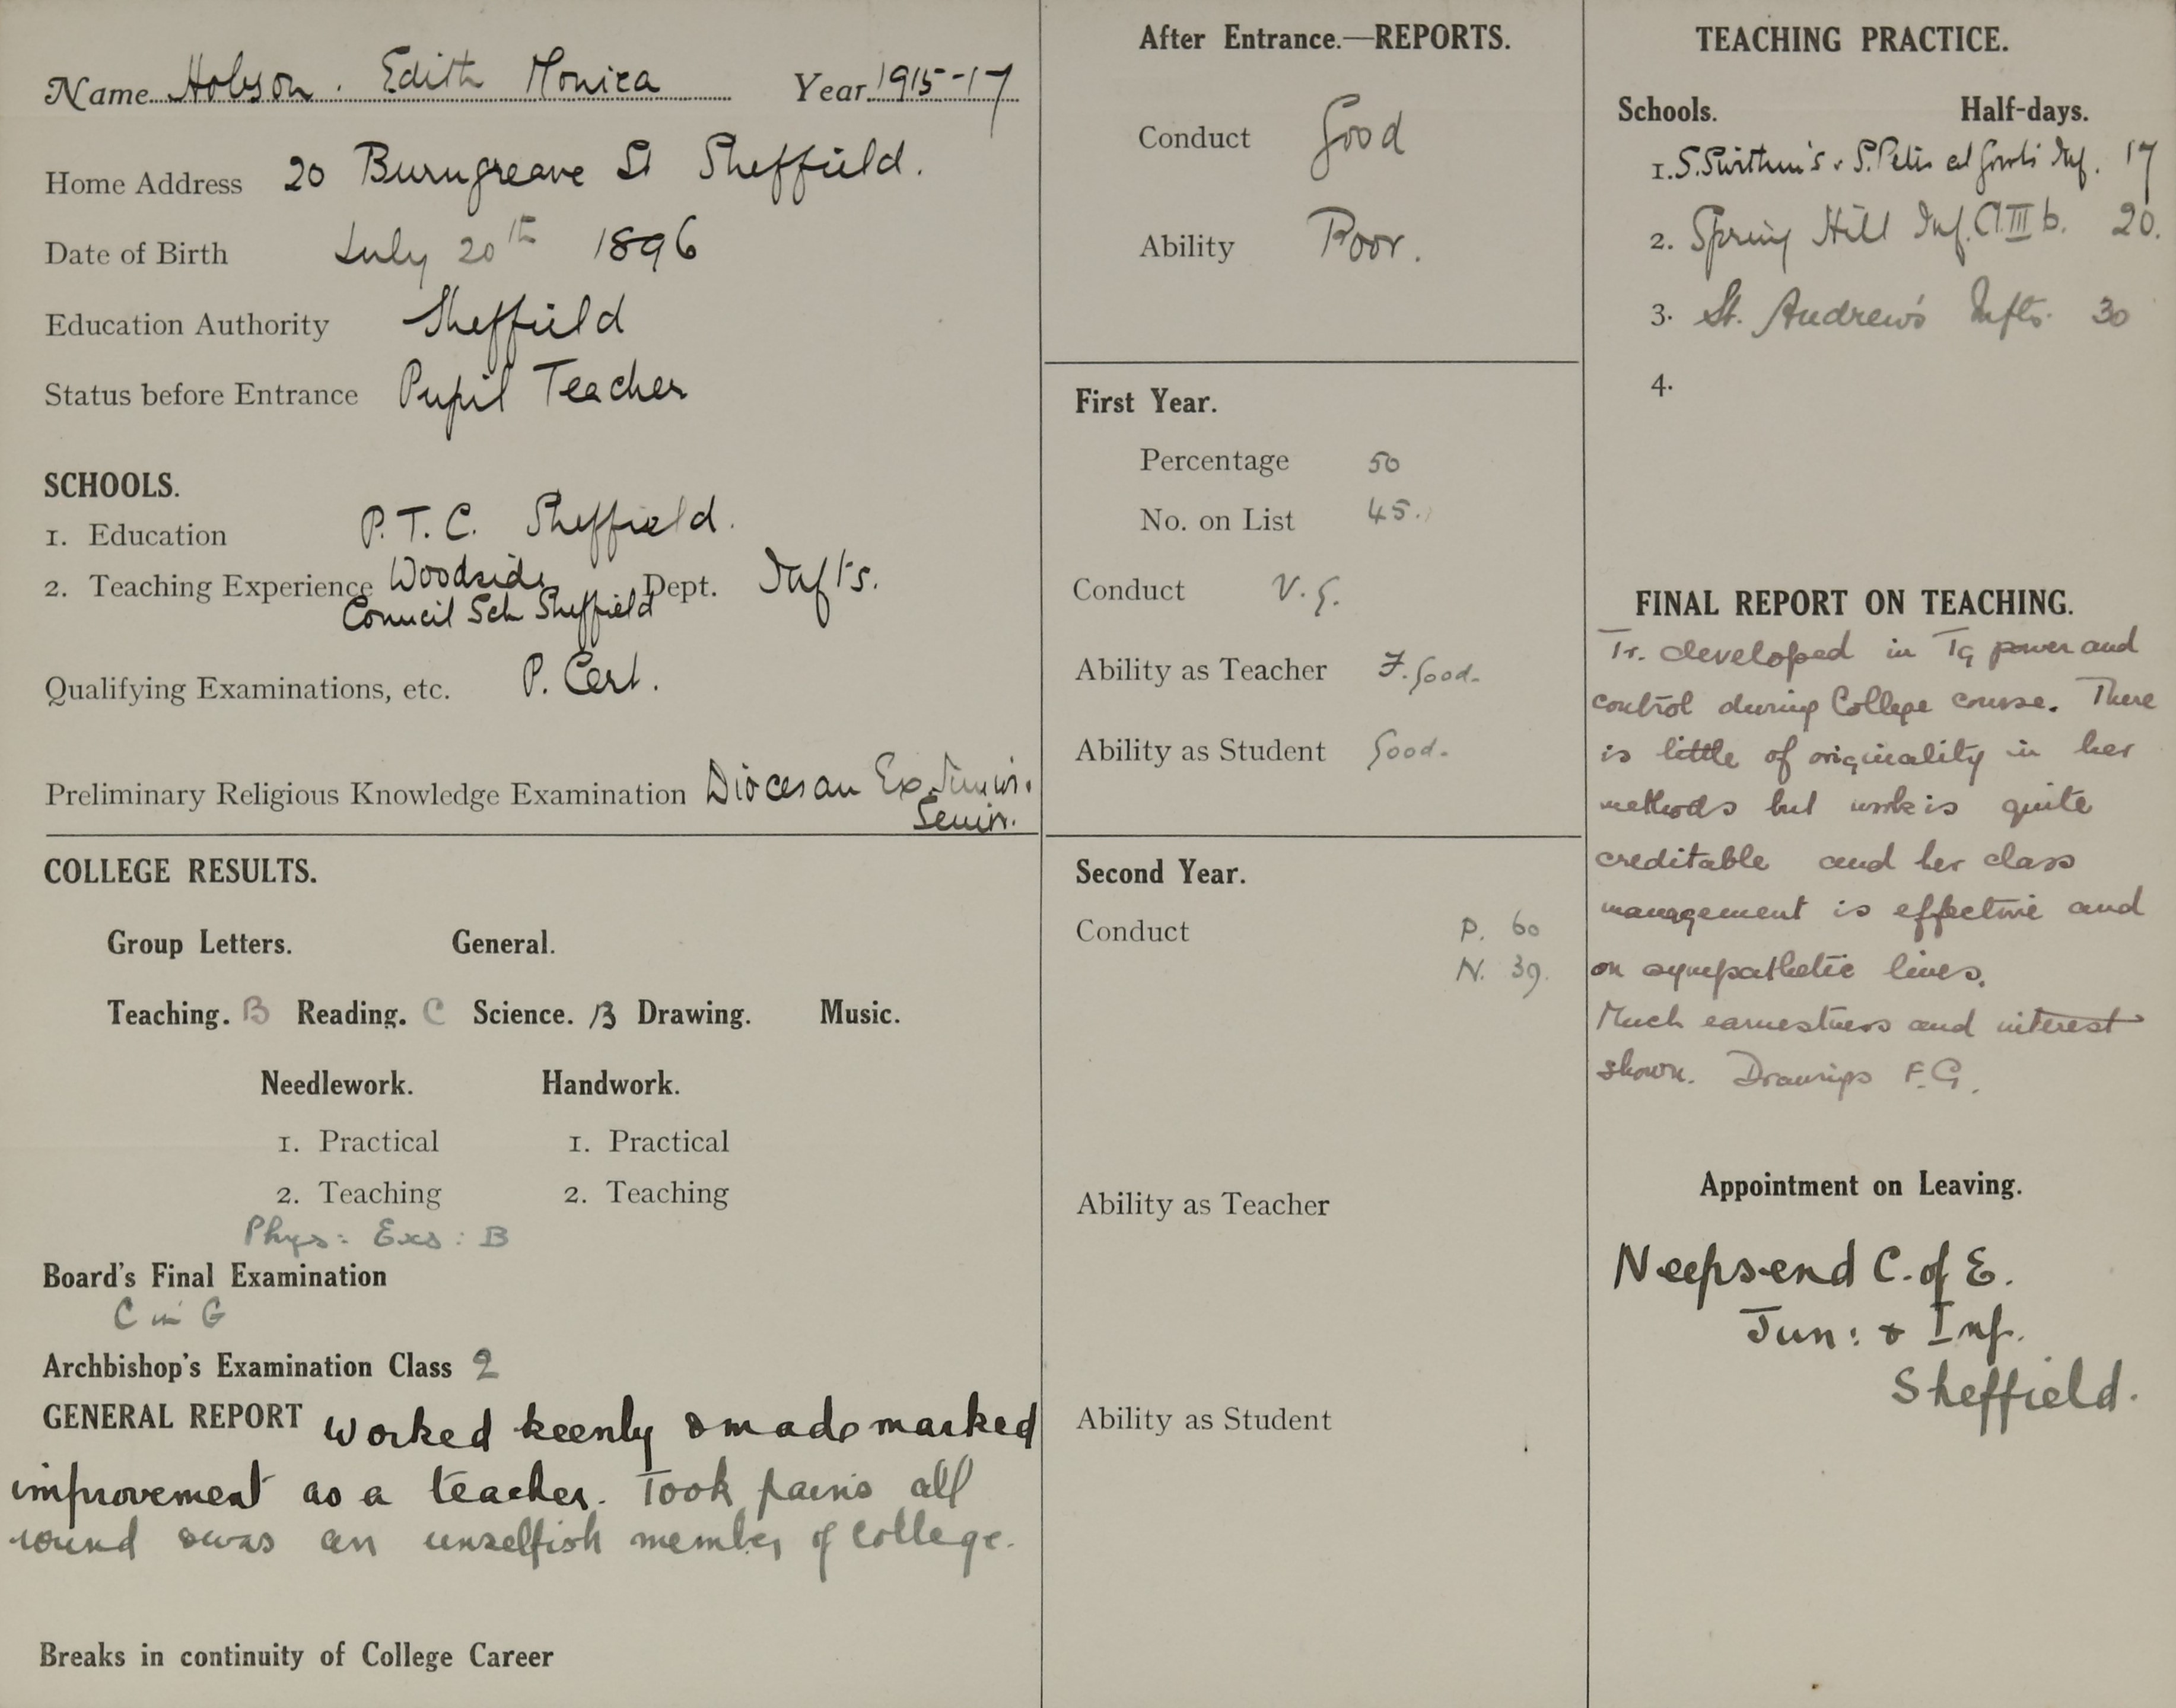 Name Hobson. Edith Monica Year 1915-17
Home Address 20 Burngreave St Sheffield.
Date of Birth July 20th 1896
Education Authority Sheffield
Status before Entrance Pupil Teacher
SCHOOLS.
1. Education P.T.C. Sheffield.
2. Teaching Experience Woodside Dept. Infts.
Council Sch Sheffield
Qualifying Examinations, etc. P. Cert.
Preliminary Religious Knowledge Examination Diocesan Ex. Junior.
Senior.
COLLEGE RESULTS.
Group Letters. General.
Teaching. B Reading. C Science. B Drawing. Music.
Needlework. Handwork.
1. Practical 1. Practical
2. Teaching 2. Teaching
Phys: Exs: B
Board's Final Examination
C in G
Archbishop's Examination Class 2
GENERAL REPORT worked keenly & made marked
improvement as a teacher. Took pains all
round & was an unselfish member of College.
Breaks in continuity of College Career
After Entrance.—REPORTS.
Conduct Good
Ability Poor.
First Year.
Percentage 50
No. on List 45.
Conduct V.G.
Ability as Teacher F. Good.
Ability as Student Good.
Second Year.
Conduct P. 60
N. 39.
Ability as Teacher
Ability as Student
TEACHING PRACTICE.
Schools. Half-days.
1. S. Swithun's & S. Peter at Inf. 17
2. Spring Hill Inf. Cl. III b. 20.
3. St. Andrew's Infts. 30
4.
FINAL REPORT ON TEACHING.
Tr. developed in Tg power and
control during College course. There
is little of originality in her
methods but work is quite
creditable and her class
management is effective and
on sympathetic lines.
Much earnestness and interest
shown. Drawings F.G.
Appointment on Leaving.
Neepsend C. of E.
Jun: & Inf.
Sheffield.